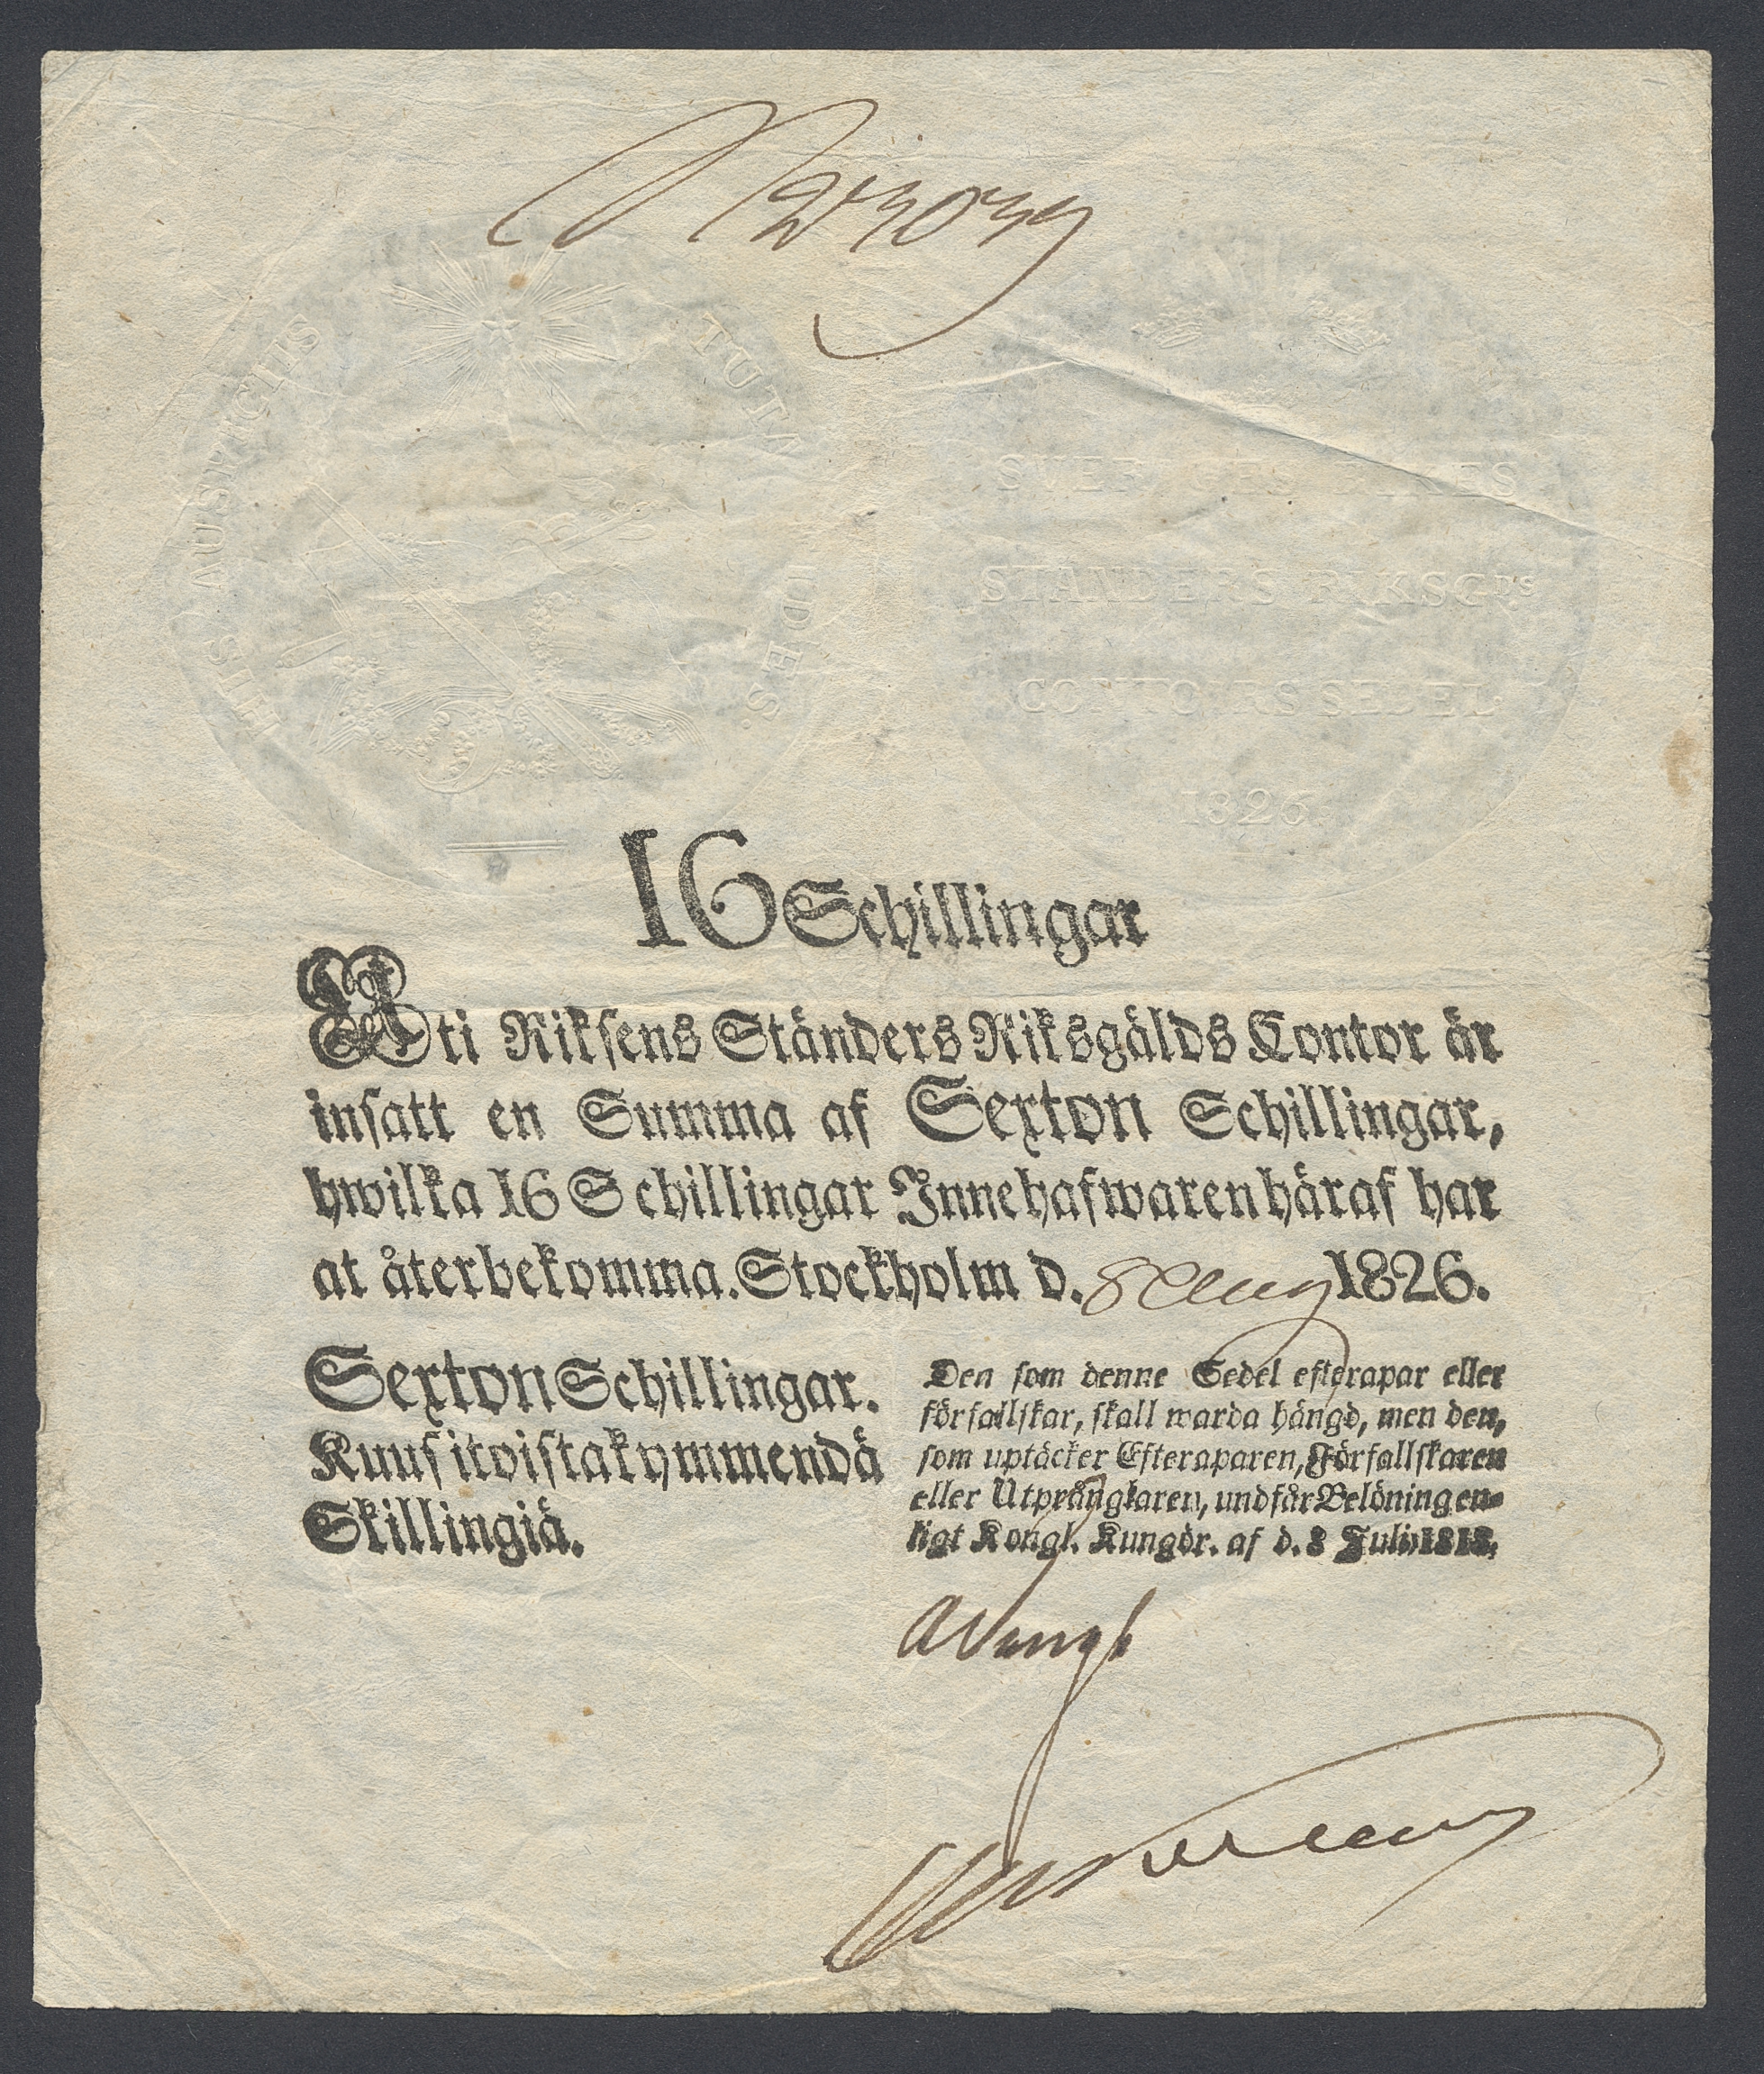 HIS AUSPICIIS TUTA FIDES.
SVERIGES RIKES
STÄNDERS RIKSG:DS
CONTOIRS SEDEL.
1826.
16 Schillingar
Uti Riksens Ständers Riksgälds Contor är
insatt en Summa af Sexton Schillingar,
hwilka 16 Schillingar Innehafwaren häraf har
at återbekomma. Stockholm d. 8 Aug 1826.
Sexton Schillingar.
Kuusitoistakymmendä
Skillingiä.
Den som denne Sedel efterapar eller
förfallskar, skall warda hängd, men den,
som uptäcker Efteraparen, Förfallskaren
eller Utprånglaren, undfår Belöning en-
ligt Kongl. Kungör. af d. 8 Julii 1818.